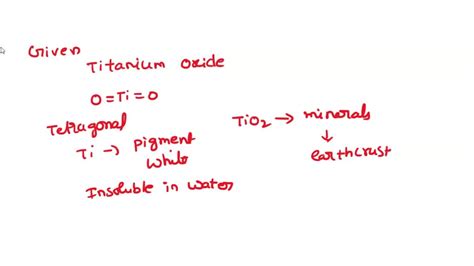 Given
Titanium oxide
O=Ti=O
Tetragonal
Ti → Pigment
white
Insoluble in water
TiO2 → minerals
↓
earthcrust